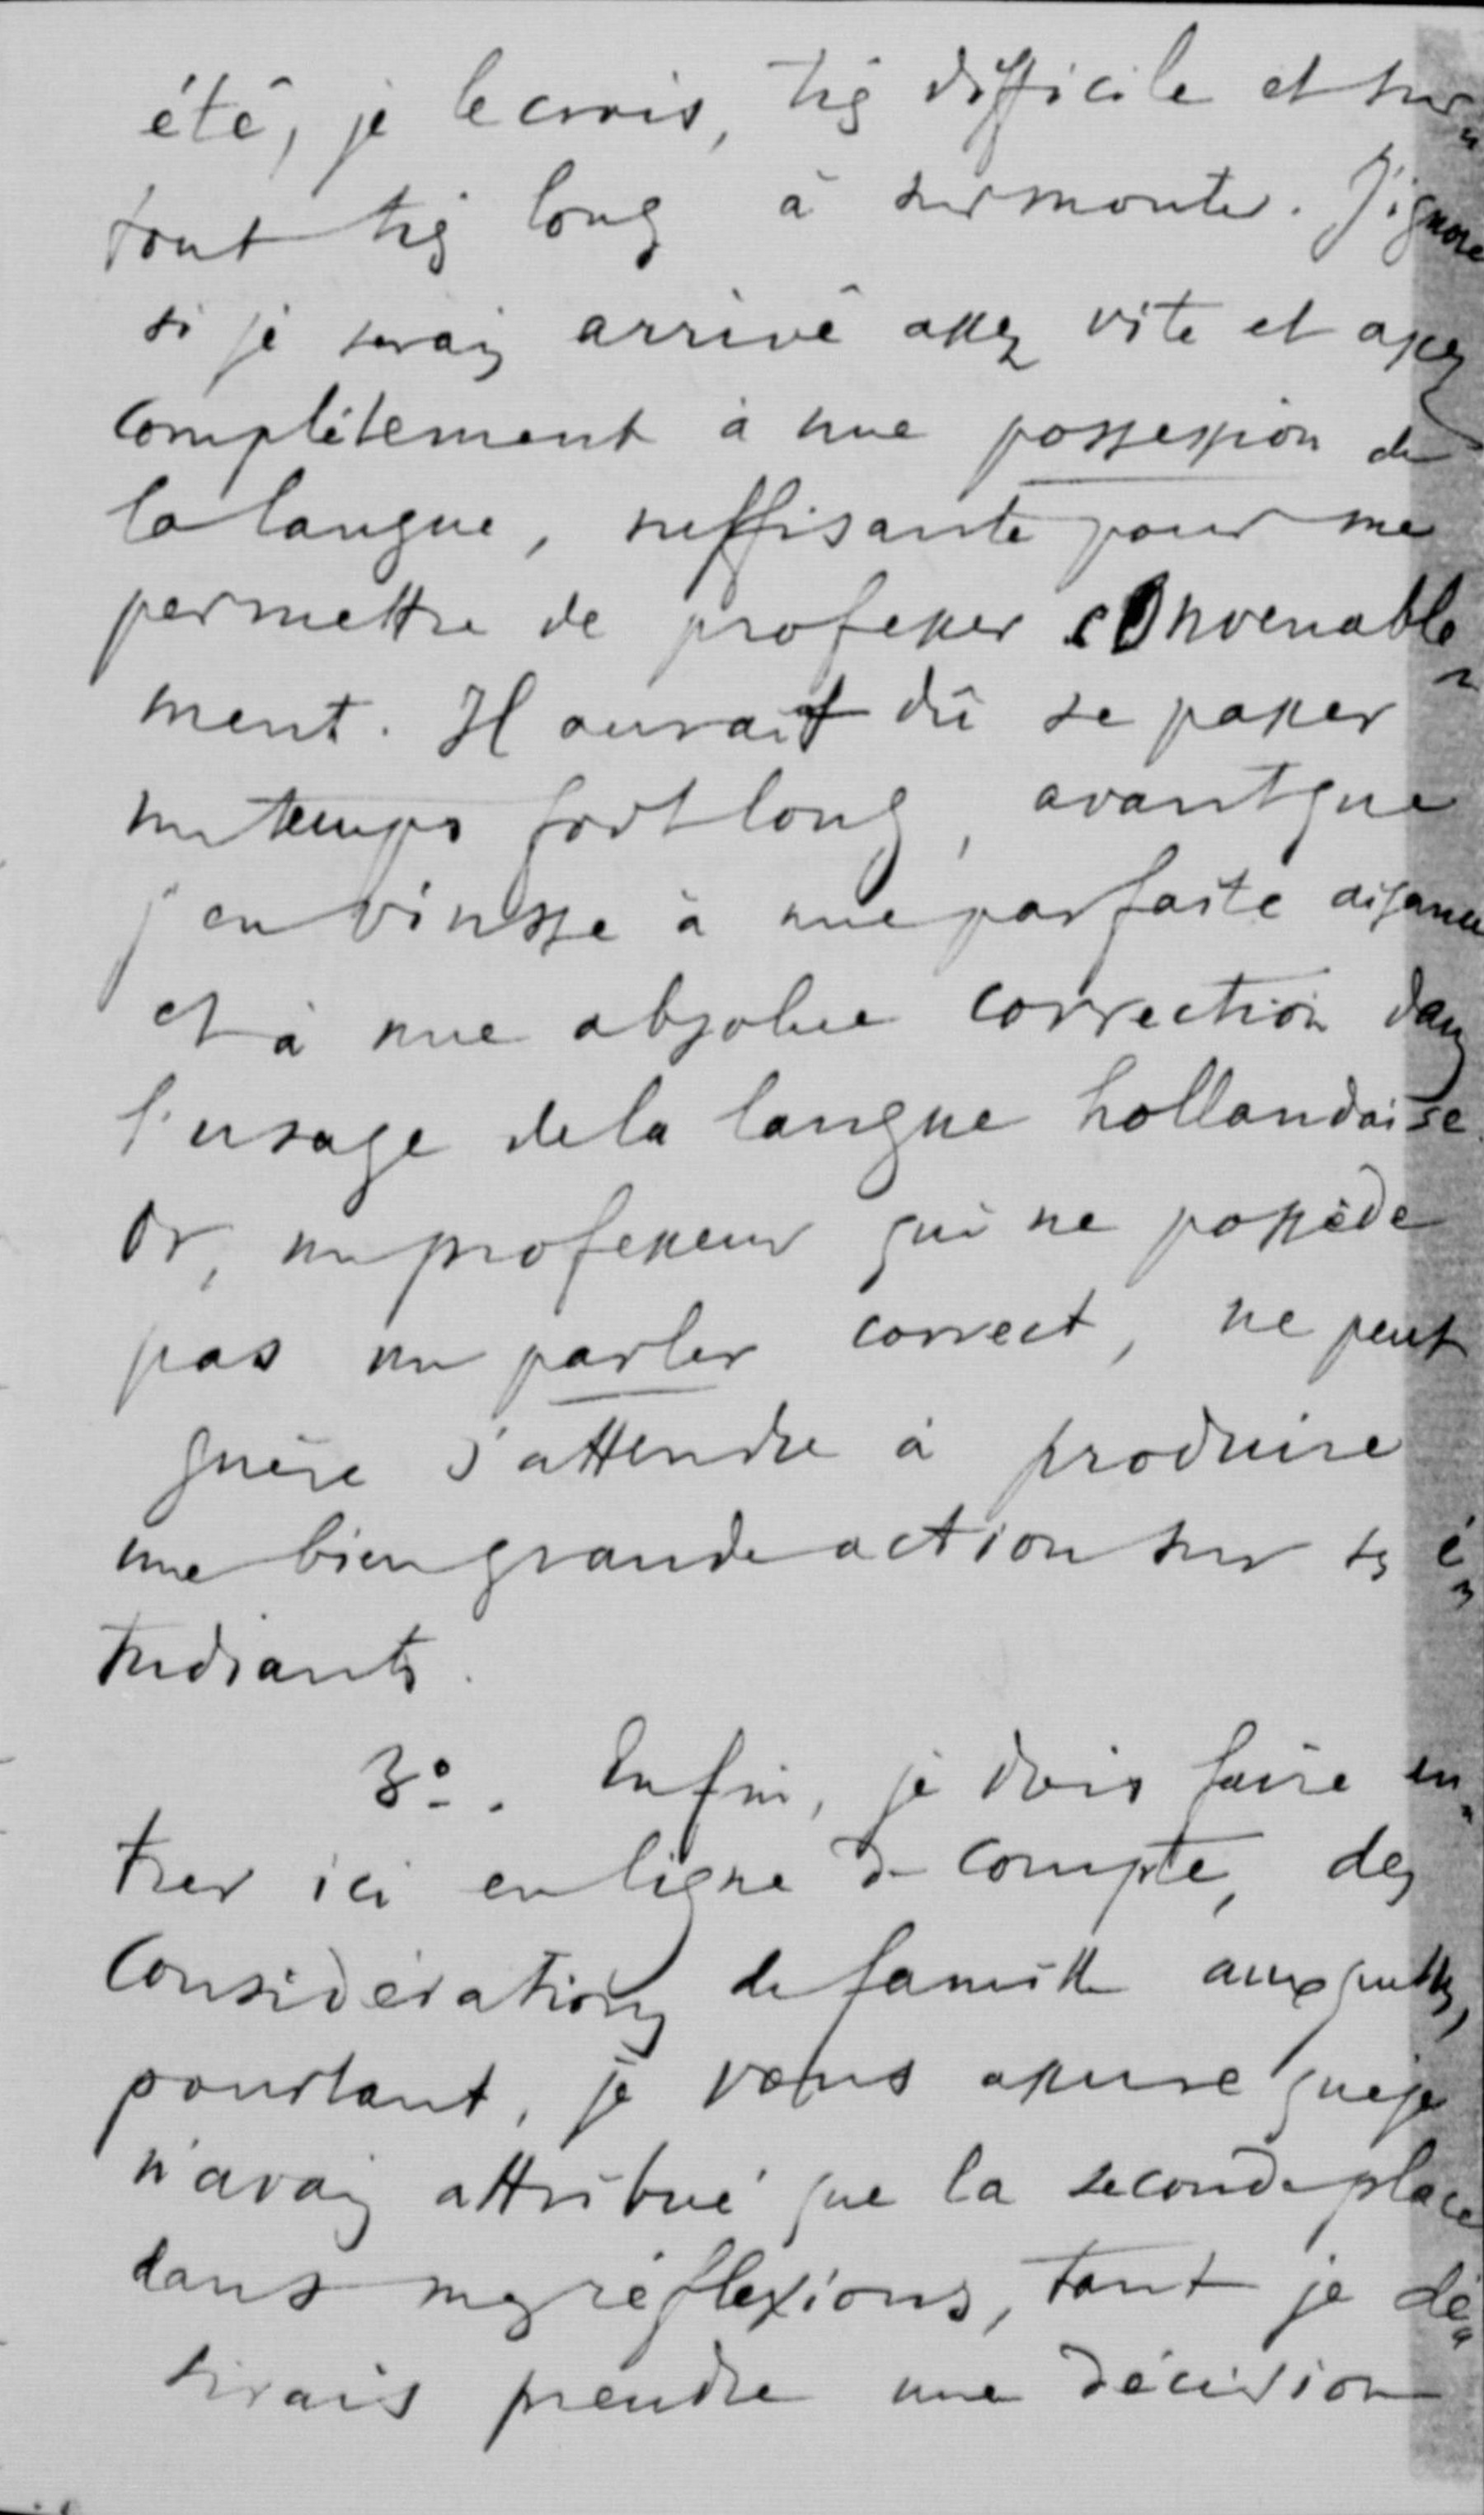 été, je le crois, très difficile et sur„
tout très long à surmonter. J'ignore
si je serais arrivé assez vite et assez
complètement à une possession de
la langue, suffisante pour me
permettre de professer convenable„
ment. Il aurait dû se passer
un temps fort long, avant que
j'en vinsse à une parfaite aisance
et à une absolue correction dans
l'usage de la langue hollandaise.
Or, un professeur qui ne possède
pas un parler correct, ne peut
guère s'attendre à produire
une bien grande action sur ses é„
tudiants.
3º. Enfin, je dois faire en„
trer ici en ligne de compte, des
considérations de famille auxquelles,
pourtant, je vous assure que je
n'avais attribué que la seconde place
dans mes réflexions, tant je dé„
sirais prendre une décision